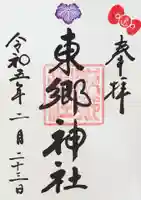 奉拝
東郷神社
令和五年二月二十三日